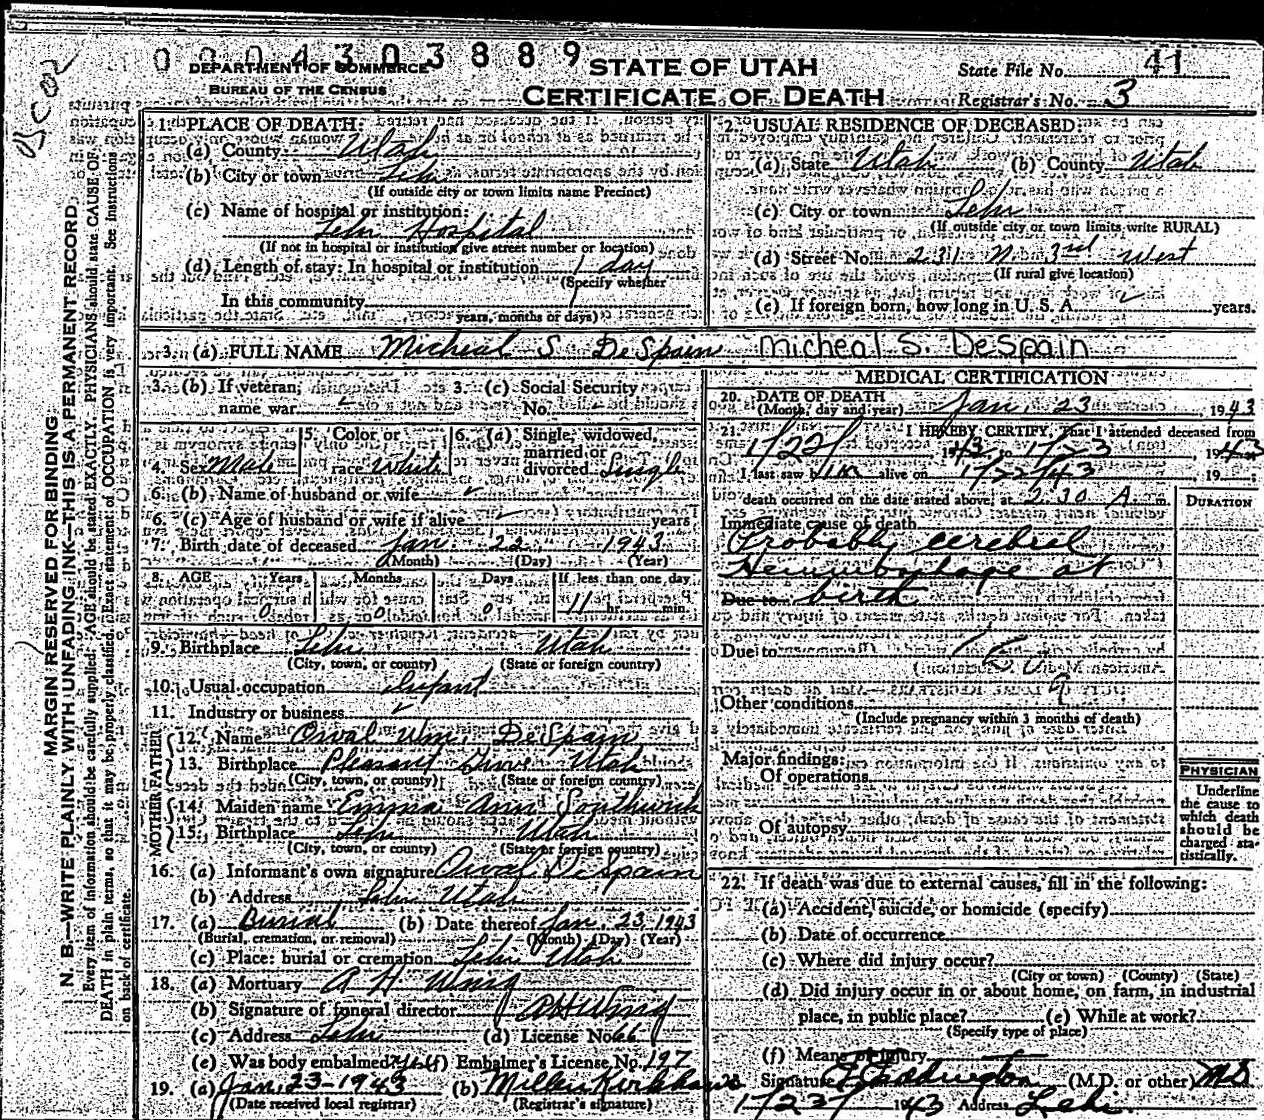 0 0 0 4 3 0 3 8 8 9
DEPARTMENT OF COMMERCE
BUREAU OF THE CENSUS
STATE OF UTAH
CERTIFICATE OF DEATH
State File No. 41
Registrar's No. 3
MARGIN RESERVED FOR BINDING
N. B.—WRITE PLAINLY WITH UNFADING INK—THIS IS A PERMANENT RECORD
Every item of information should be carefully supplied. AGE should be stated EXACTLY. PHYSICIANS should state CAUSE OF
DEATH in plain terms, so that it may be properly classified. Exact statement of OCCUPATION is very important. See Instructions
on back of certificate.
1. PLACE OF DEATH:
(a) County Utah
(b) City or town Lehi
(If outside city or town limits name Precinct)
(c) Name of hospital or institution:
Lehi Hospital
(If not in hospital or institution give street number or location)
(d) Length of stay: In hospital or institution 1 day
(Specify whether
In this community
years, months or days)
2. USUAL RESIDENCE OF DECEASED:
(a) State Utah (b) County Utah
(c) City or town Lehi
(If outside city or town limits write RURAL)
(d) Street No. 231 N. 3rd West
(If rural give location)
(e) If foreign born, how long in U. S. A. years.
3. (a) FULL NAME Micheal S DeSpain Micheal S. DeSpain
3. (b) If veteran, name war 3. (c) Social Security No.
4. Sex Male 5. Color or race White 6. (a) Single, widowed, married or divorced Single
6. (b) Name of husband or wife
6. (c) Age of husband or wife if alive years
7. Birth date of deceased Jan. 22 1943
(Month) (Day) (Year)
8. AGE Years Months Days If less than one day
0 0 0 11 hr. min.
9. Birthplace Lehi Utah
(City, town, or county) (State or foreign country)
10. Usual occupation Infant
11. Industry or business
FATHER
12. Name Orval Wm. DeSpain
13. Birthplace Pleasant Grove Utah
(City, town, or county) (State or foreign country)
MOTHER
14. Maiden name Emma Ann Southwick
15. Birthplace Lehi Utah
(City, town, or county) (State or foreign country)
16. (a) Informant's own signature Orval DeSpain
(b) Address Lehi Utah
17. (a) Burial (b) Date thereof Jan. 23 1943
(Burial, cremation, or removal) (Month) (Day) (Year)
(c) Place: burial or cremation Lehi Utah
18. (a) Mortuary A H Wing
(b) Signature of funeral director A H Wing
(c) Address Lehi (d) License No. 66
(e) Was body embalmed? (f) Embalmer's License No. 197
19. (a) Jan. 23-1943 (b)
(Date received local registrar) (Registrar's signature)
MEDICAL CERTIFICATION
20. DATE OF DEATH
(Month, day and year) Jan. 23, 1943
21. I HEREBY CERTIFY, That I attended deceased from
1/22/ 1943 to 1/23 1943
I last saw him alive on 1/22/43, 19
death occurred on the date stated above, at 2:30 A. m.
DURATION
Immediate cause of death
Probably cerebral
Hemmorhage at
Due to birth
Due to
Other conditions
(Include pregnancy within 3 months of death)
Major findings:
Of operations
Of autopsy
PHYSICIAN
Underline
the cause to
which death
should be
charged sta-
tistically.
22. If death was due to external causes, fill in the following:
(a) Accident, suicide, or homicide (specify)
(b) Date of occurrence
(c) Where did injury occur?
(City or town) (County) (State)
(d) Did injury occur in or about home, on farm, in industrial
place, in public place? (e) While at work?
(Specify type of place)
(f) Means of injury
Signature (M.D. or other) MD
1/23/ 1943 Address Lehi